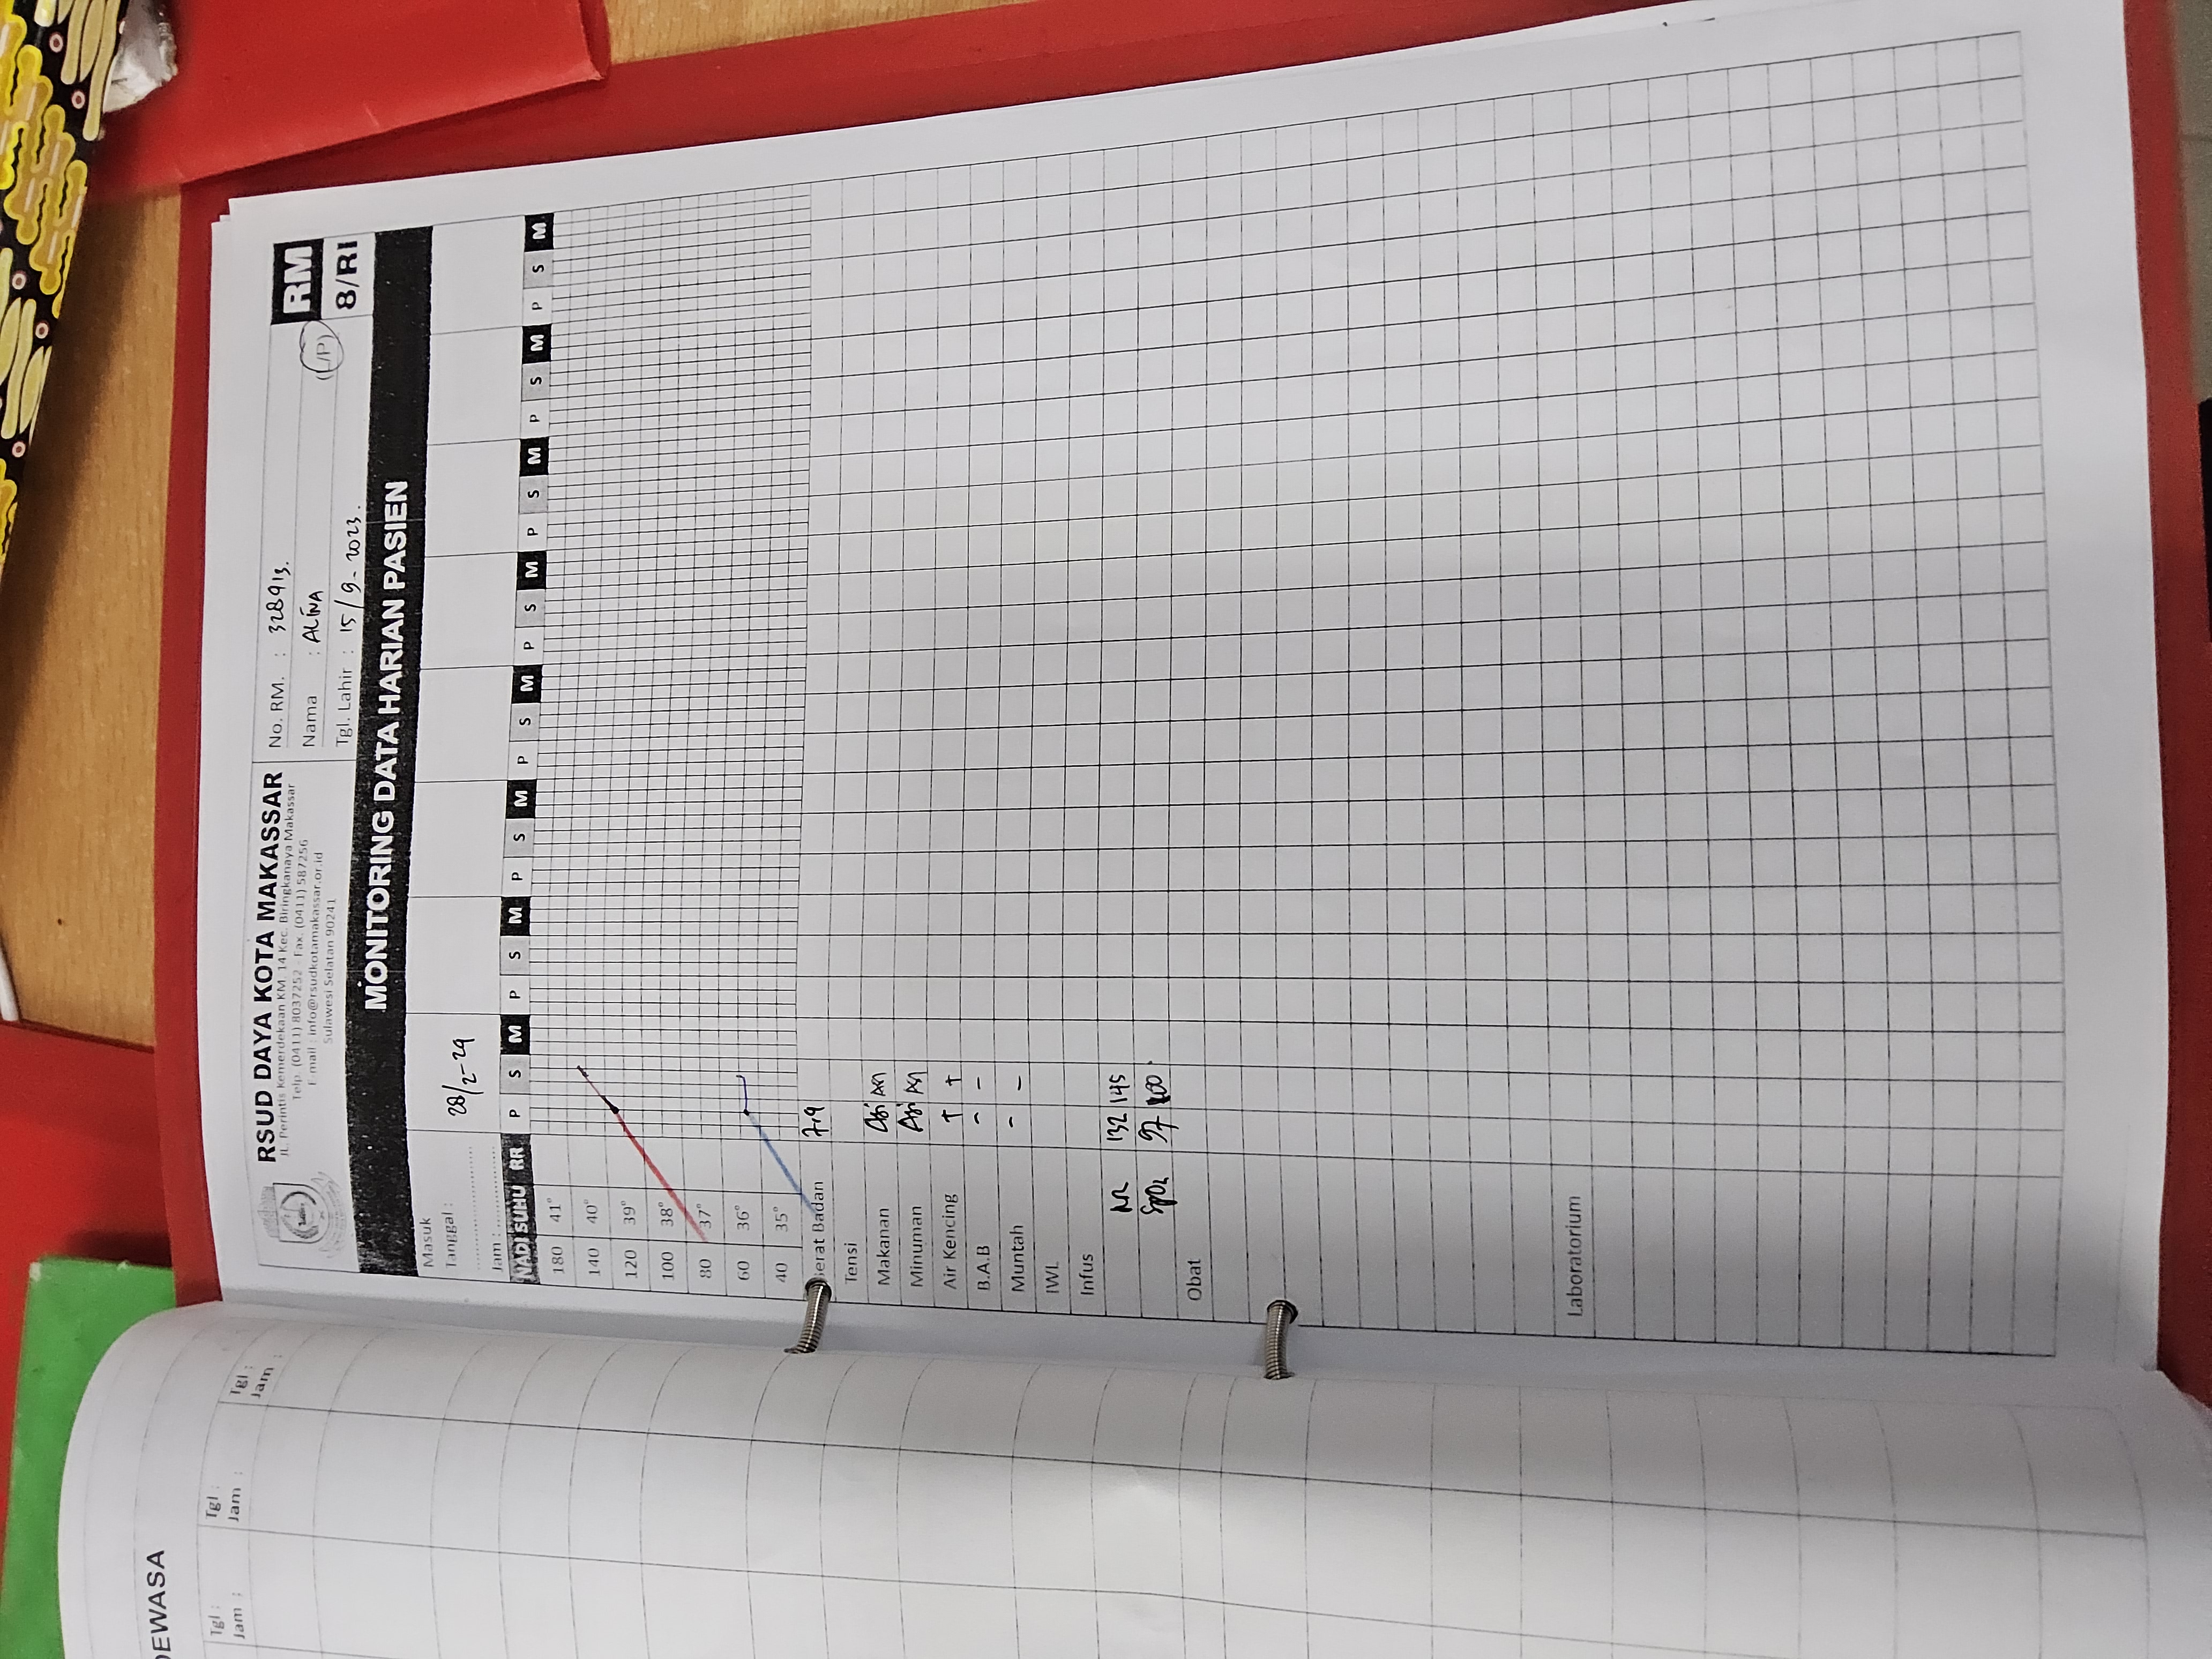 DEWASA
Tgl : Tgl : Tgl :
Jam : Jam : Jam :
RSUD DAYA KOTA MAKASSAR
JL. Perintis Kemerdekaan KM. 14 Kec. Biringkanaya Makassar
Telp. (0411) 8037252 - Fax. (0411) 587256
E-mail : info@rsudkotamakassar.or.id
Sulawesi Selatan 90241
No. RM. : 328913.
Nama : ALINA (L/P)
Tgl. Lahir : 15/9-2023.
RM
8/RI
MONITORING DATA HARIAN PASIEN
Masuk
Tanggal : 28/2-24
Jam :
NADI SUHU RR P S M P S M P S M P S M P S M P S M P S M P S M
180 41°
140 40°
120 39°
100 38°
80 37°
60 36°
40 35°
Berat Badan 7.9
Tensi
Makanan Asi Asi
Minuman Asi Asi
Air Kencing + +
B.A.B - -
Muntah - -
IWL
Infus
132 145
SpO2 97 100
Obat
Laboratorium